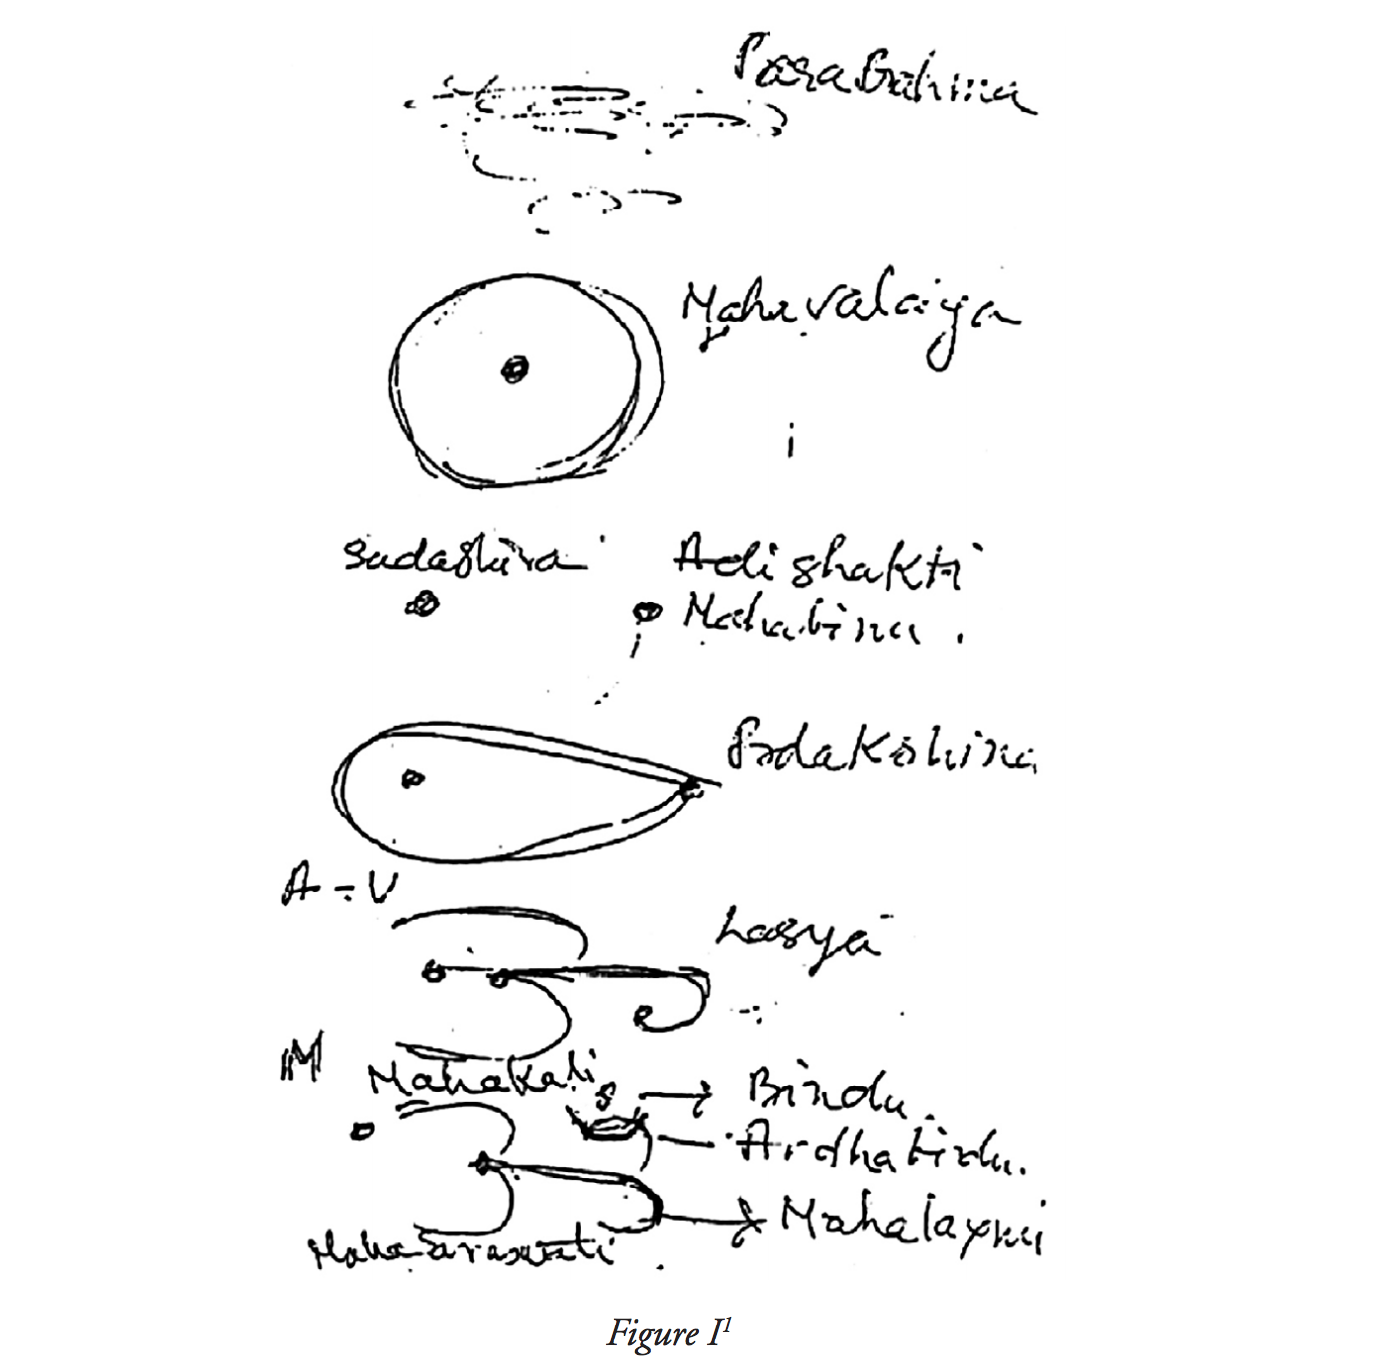 ParaBrahma
Mahavalaiya
Sadashiva Adi shakti
Mahabindu.
Prdakshina
A - U
Lasya
M
Mahakali
Bindu.
Ardhabindu.
Mahalaxmi
Mahasaraswati
Figure I¹